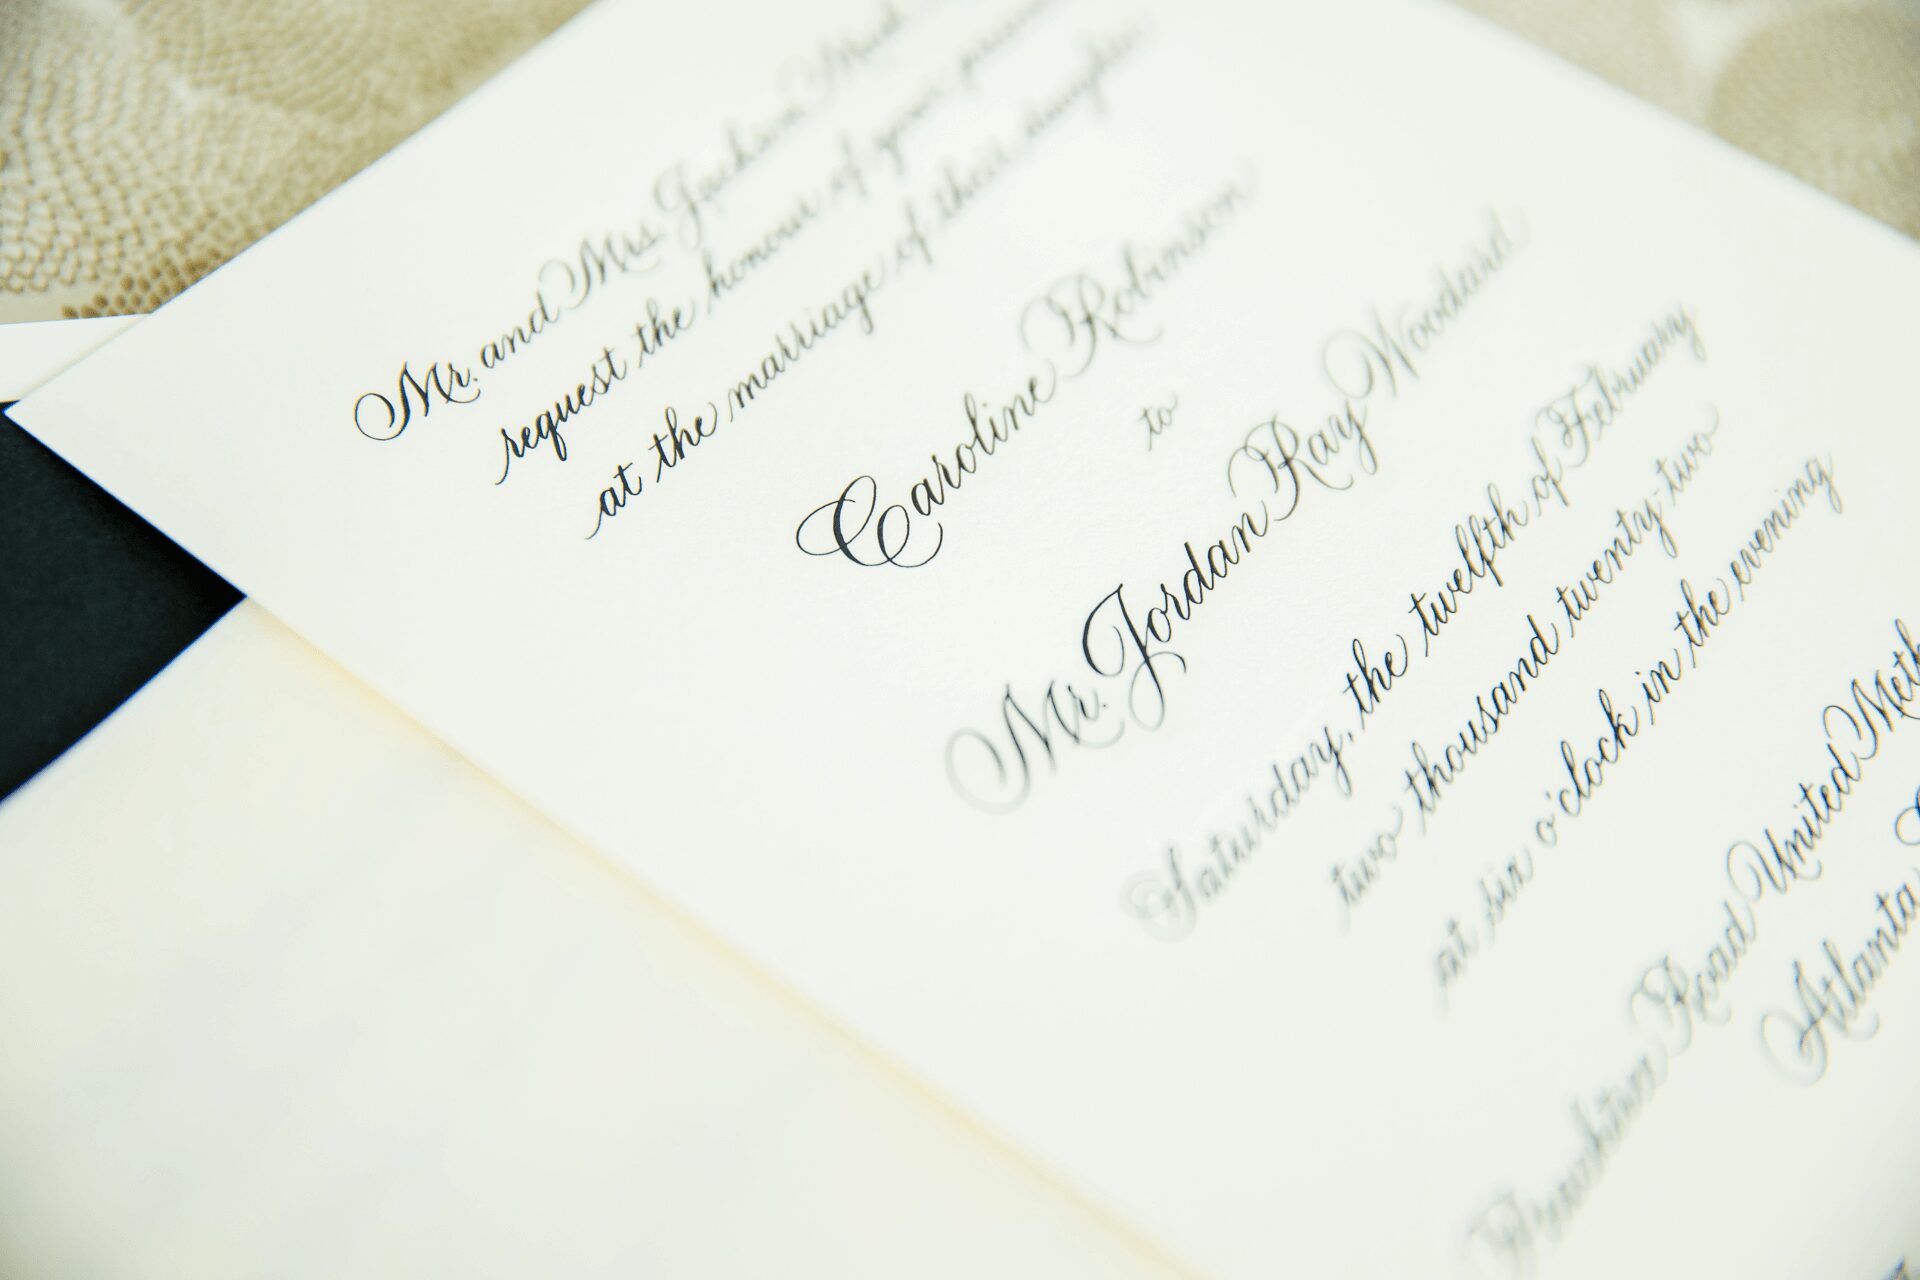 Mr. and Mrs. Jackson
request the honour of your
at the marriage of their daughter
Caroline Robinson
to
Mr. Jordan Ray Woodard
Saturday, the twelfth of February
two thousand twenty-two
at six o'clock in the evening
Peachtree Road United
Atlanta